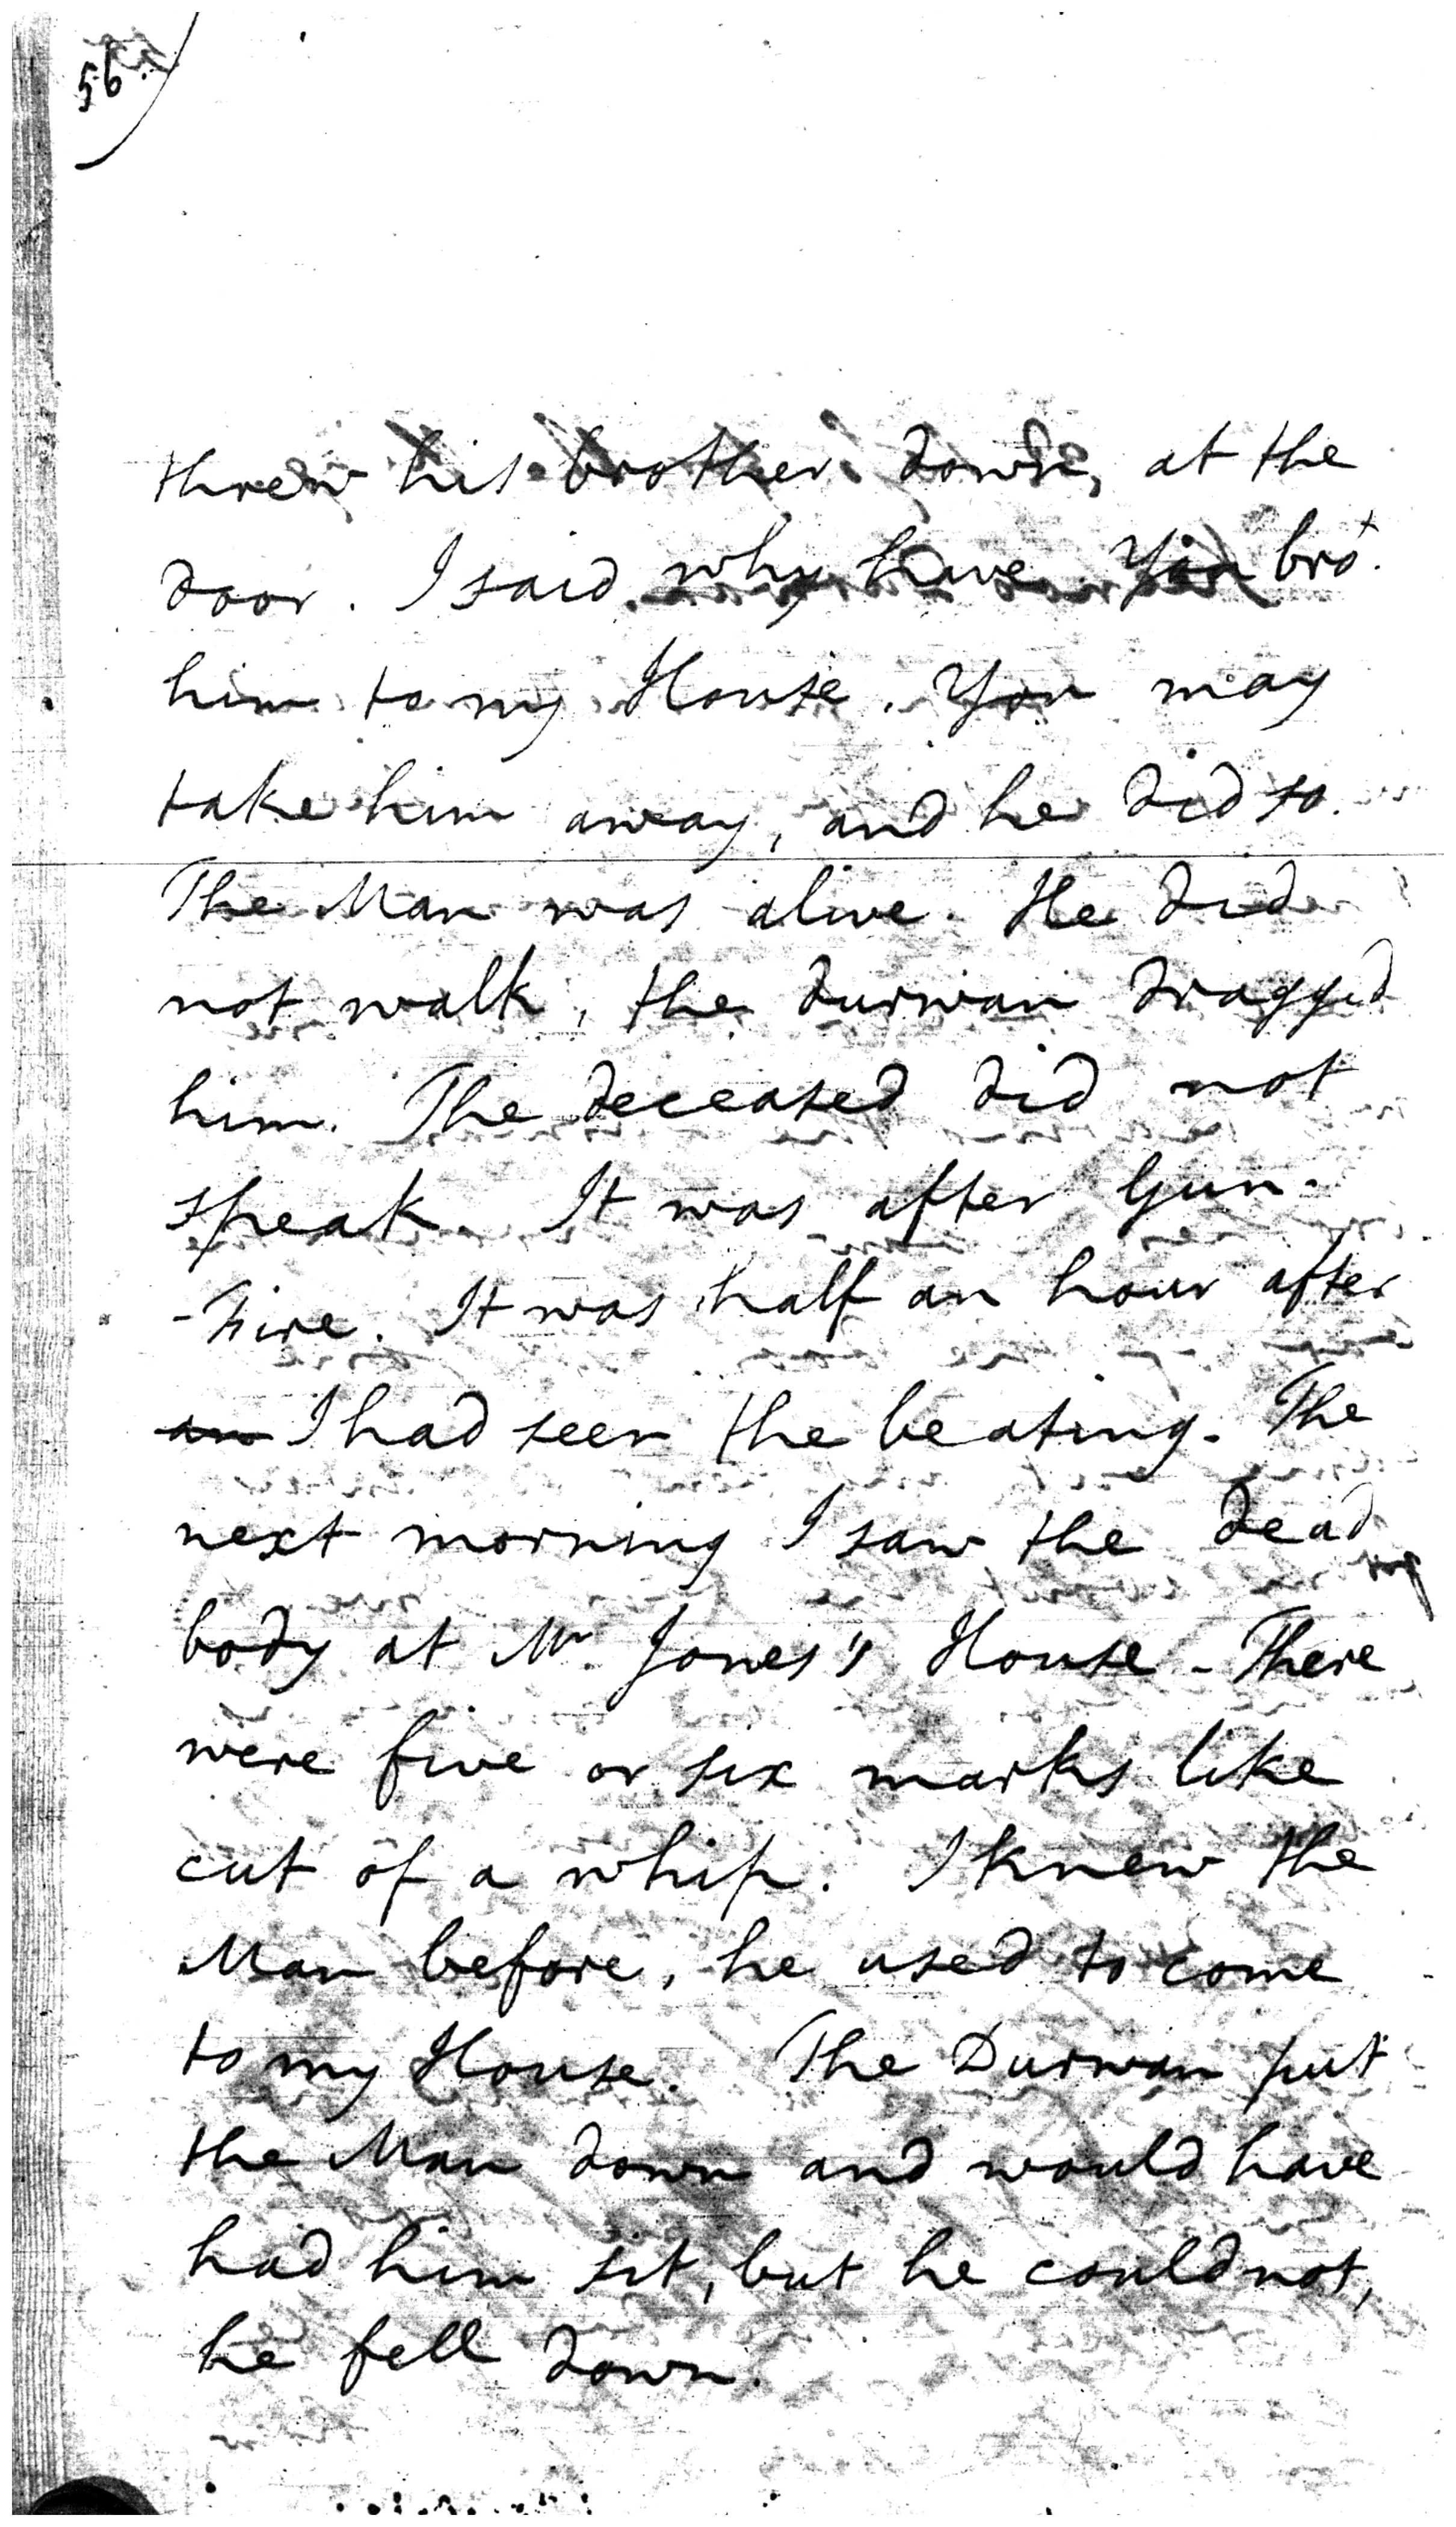 56.
threw his brother down, at the
door. I said, why have You bro.t
him to my House. You may
take him away, and he did so.
The Man was alive. He did
not walk, the durwan dragged
him. The deceased did not
speak. It was after Gun-
-Fire. It was half an hour after
an I had seen the beating. The
next morning I saw the dead
body at Mr Jones's House - There
were five or six marks like
cut of a whip. I knew the
Man before, he used to come
to my House. The Durwan put
the Man down and would have
had him sit, but he could not,
he fell down.